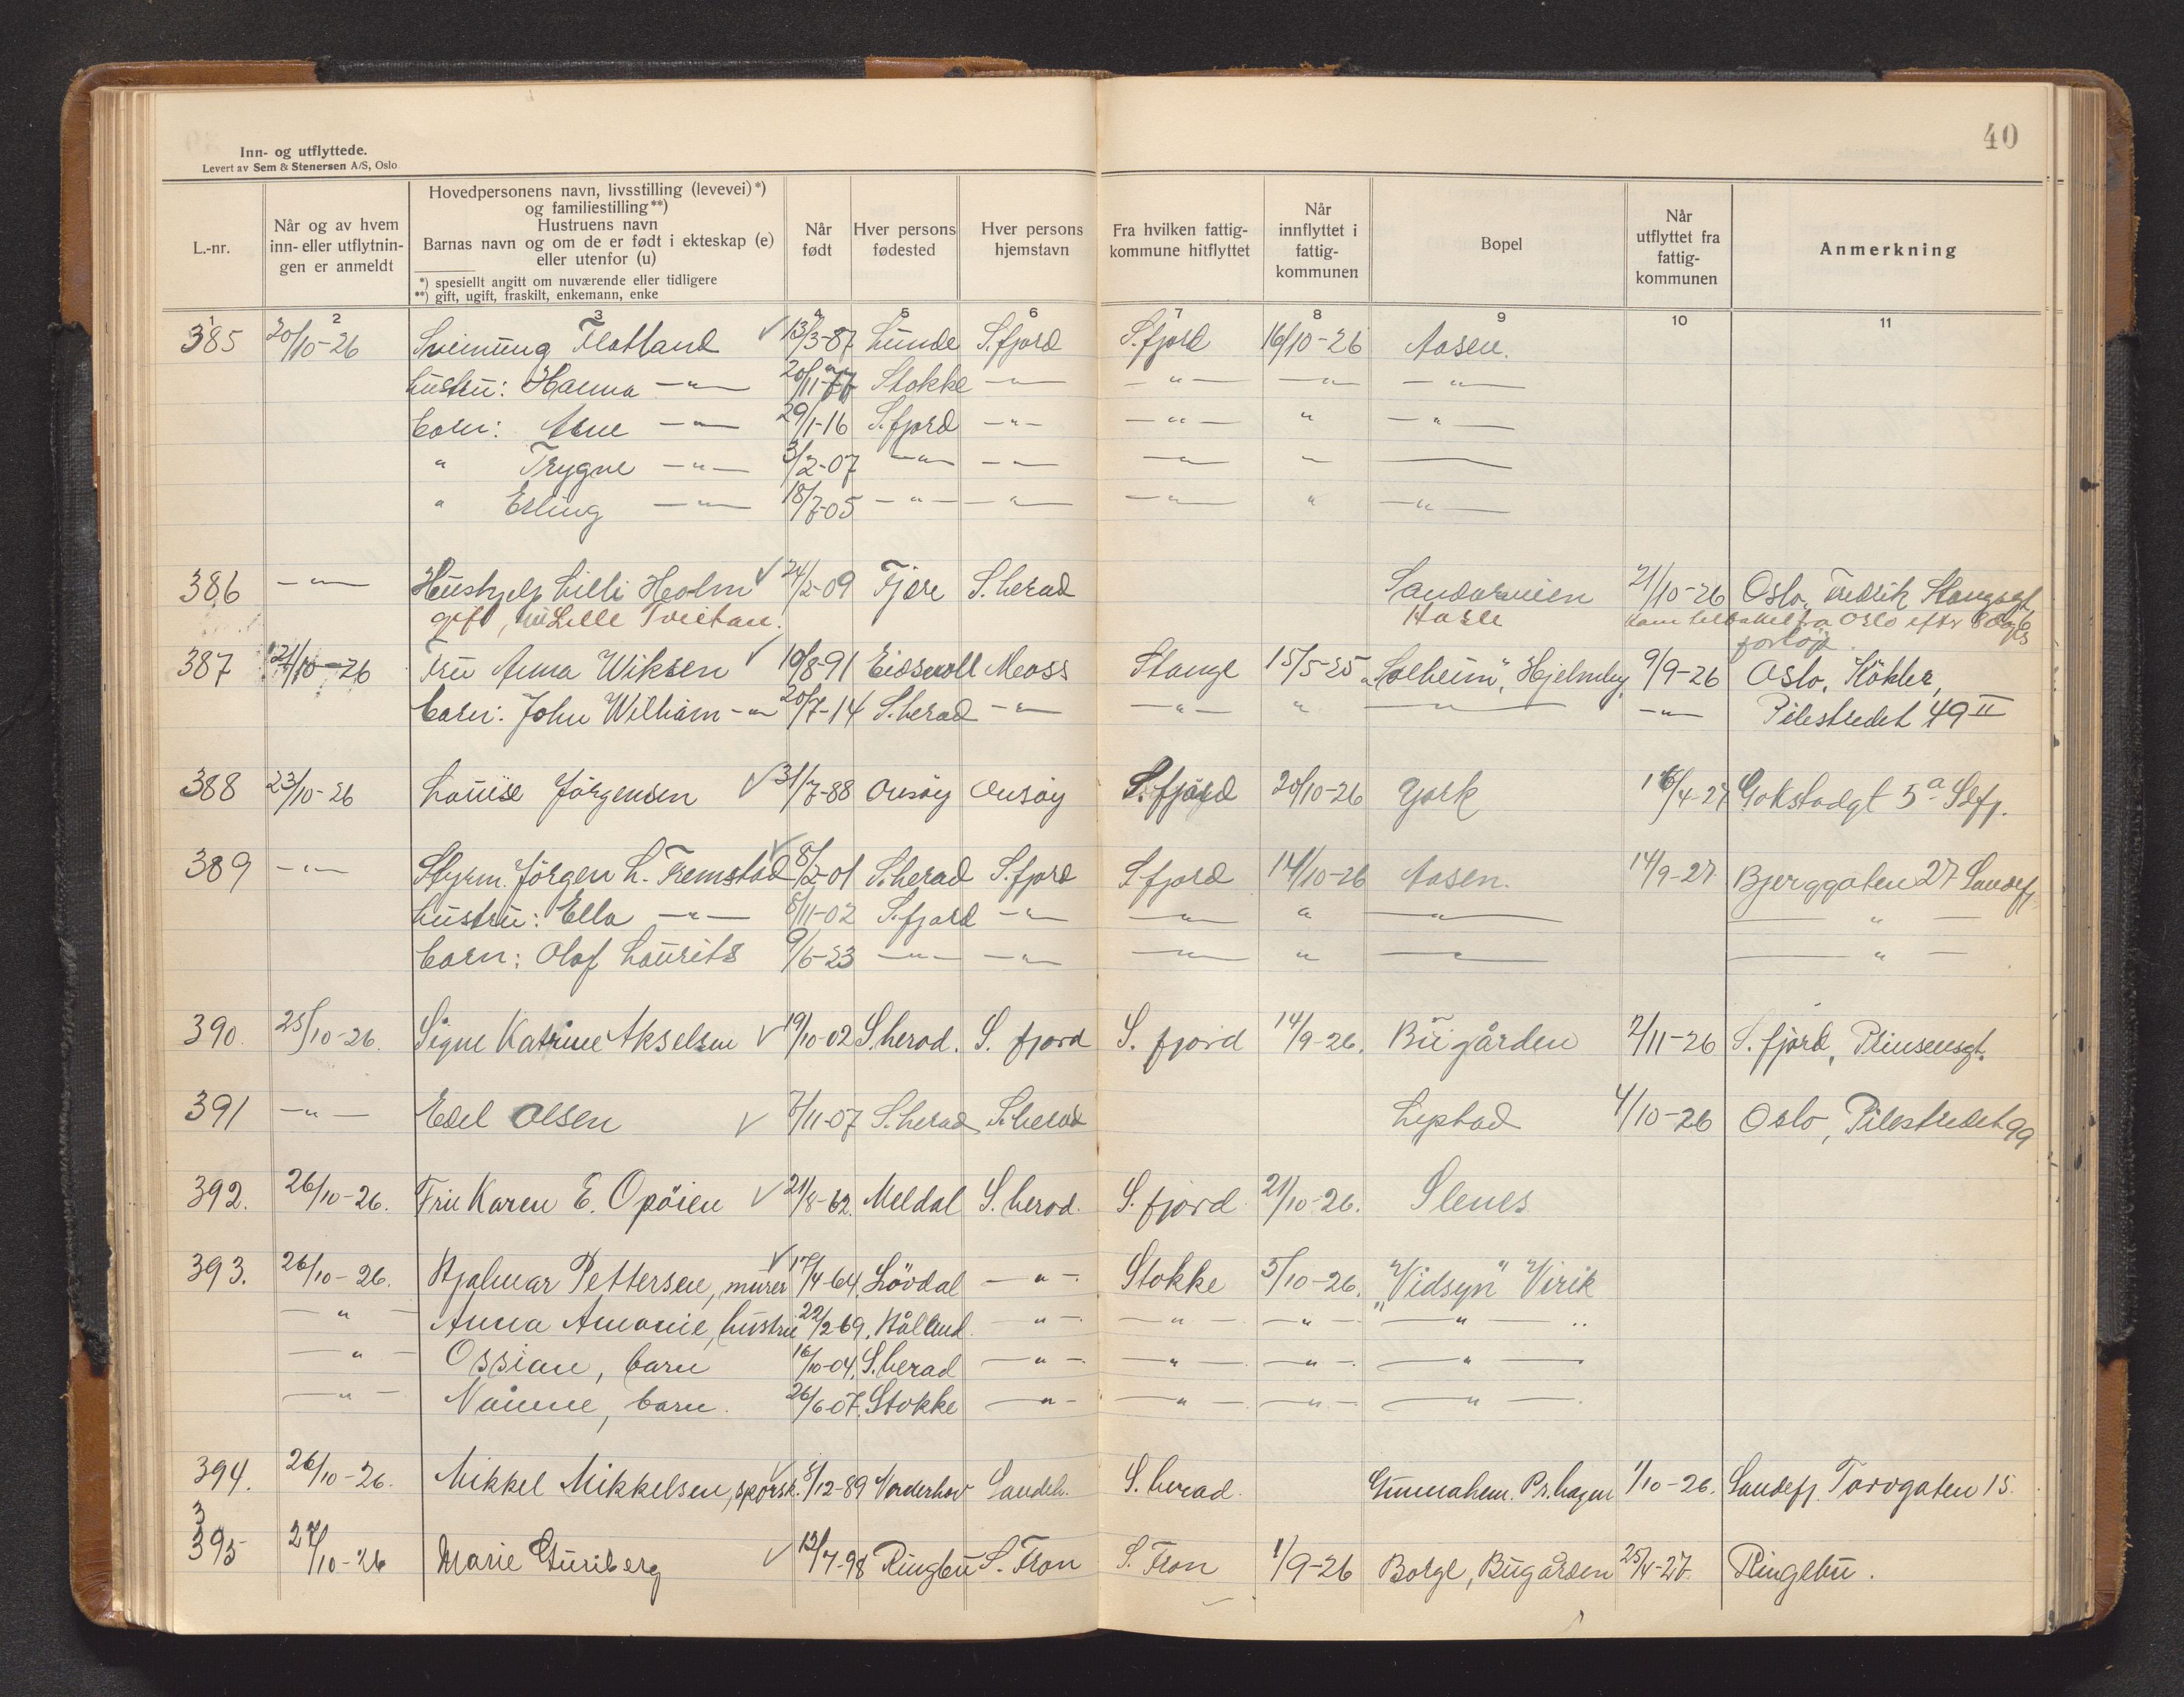 40
Inn- og utflyttede.
Levert av Sem & Stenersen A/S, Oslo
L.-nr.
Når og av hvem inn- eller utflytnin- gen er anmeldt
Hovedpersonens navn, livsstilling (levevei)*)
og familiestilling**)
Hustruens navn
Barnas navn og om de er født i ekteskap (e)
eller utenfor (u)
*) spesiellt angitt om nuværende eller tidligere
**) gift, ugift, fraskilt, enkemann, enke
Når født
Hver persons fødested
Hver persons hjemstavn
Fra hvilken fattig- kommune hitflyttet
Når innflyttet i fattig- kommunen
Bopel
Når utflyttet fra fattig- kommunen
Anmerkning
1 2 3 4 5 6 7 8 9 10 11
385 20/10-26 Sveinung Flatland ✓ 13/3-87 Lunde S.fjord S.fjord 16/10-26 Aasen.
hustru: Hanna —"— 20/11-77 Stokke —"— —"— —"— —"—
barn: Arne —"— 29/1-16 S.fjord —"— —"— " —"—
" Trygve —"— 3/2-07 —"— —"— —"— " ——
" Erling —"— 18/7-05 —"— —"— —"— " —"—
386 —"— Hushjelp Lilli Holm ✓ 24/2-09 Fjære S.herad Sandarveien 21/10-26 Oslo, Fredrik Stangsgt.
gift, Lille Tveitan. Hasle Kom tilbake fra Oslo efter 8 dages
forløp.
387 21/10-26 Fru Anna Wiksen ✓ 10/8-91 Eidsvoll Moss Stange 15/5-25 "Solheim", Hjelmby 9/9-26 Oslo, Køhler,
barn: John William —"— 20/7-14 S.herad —"— —"— " —"— —"— Pilestredet 49 II
388 23/10-26 Louise Jørgensen ✓ 31/7-88 Onsøy Onsøy S.fjord 20/10-26 York 16/4-27 Gokstadgt 5a S.fj.
389 —"— Styrm. Jørgen L. Fremstad ✓ 8/2-01 S.herad S.fjord S.fjord 14/10-26 Aasen. 14/9-27 Bjerggaten 27 Sandefj.
hustru: Ella —"— 8/11-02 S.fjord —"— —"— " —"— —"—
barn: Olaf Laurits 9/6-23 —"— —"— —"— " —"— —"—
390. 25/10-26. Signe Katrine Akselsen ✓ 19/10-02 S.herad. S. fjord S. fjord 14/9-26. Bugården 2/11-26 S. fjord, Prinsensgt.
391 —"— Edel Olsen ✓ 7/11-07 S.herad S.herad Lystad 4/10-26 Oslo, Pilestredet 99
392. 26/10-26. Fru Karen E. Opøien ✓ 21/8-62. Meldal S. herad. S. fjord 21/10-26. Slenes
393. 26/10-26. Hjalmar Pettersen, murer ✓ 17/4-64. Løvdal —"— Stokke 5/10-26. "Vidsyn" Virik
—"— Anna Amanie, hustru 22/2 69. Halland —"— —"— —"— —"—
—"— Ossian, barn 16/10-04. S.herad —"— —"— —"— —"—
—"— Nanne, barn. 26/6-07. Stokke —"— —"— —"— —"—
394. 26/10-26. Mikkel Mikkelsen, ✓ 8/12-89 Norderhov Sandeh. S. herad. Gunnahem. Pr.hagen 1/10-26. Sandefj. Torvgaten 15.
3
395 27/10-26 Marie Guriberg ✓ 12/7-98 Ringbu S. Fron S. Fron 1/9-26 Borge, Bugården 25/4-27 Ringebu.